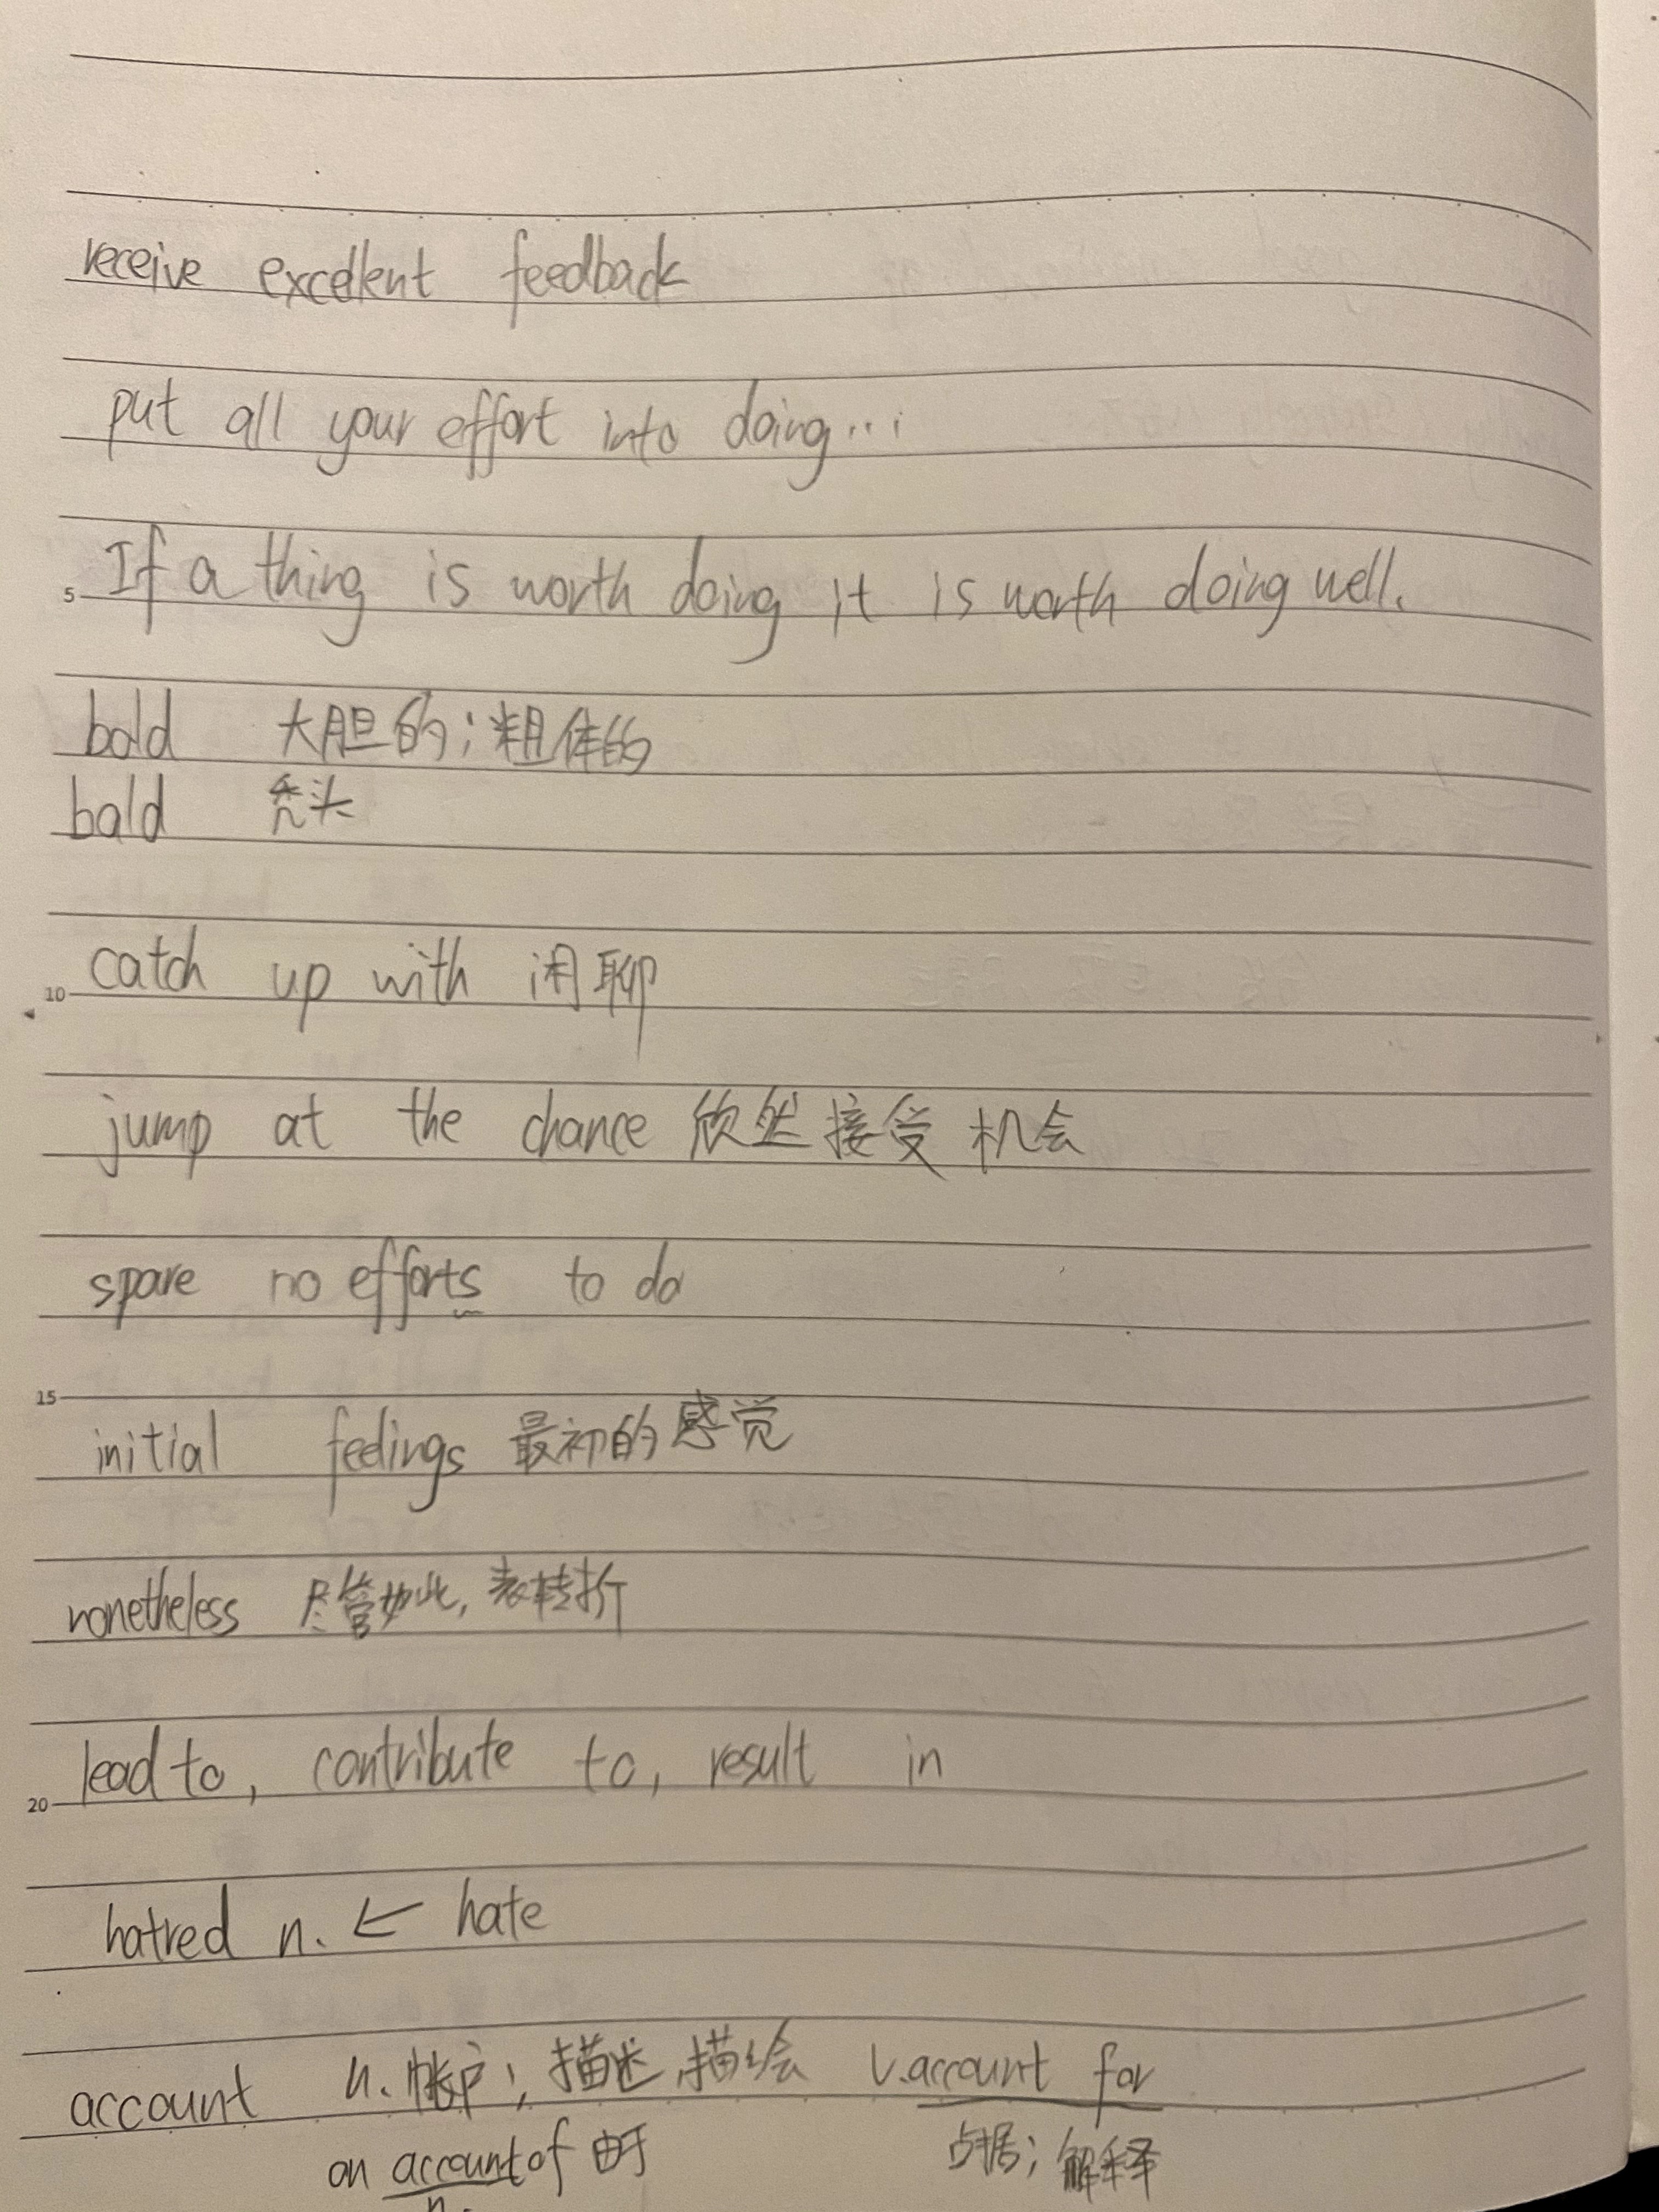 receive excellent feedback
put all your effort into doing...
5 If a thing is worth doing it is worth doing well.
bold 大胆的；粗体的
bald 秃头
10 catch up with 闲聊
jump at the chance 欣然接受机会
spare no efforts to do
15 initial feelings 最初的感觉
nonetheless 尽管如此，表转折
20 lead to, contribute to, result in
hatred n. ← hate
account n. 账户；描述 描绘 v. account for
on account of 由于 占据；解释
n.